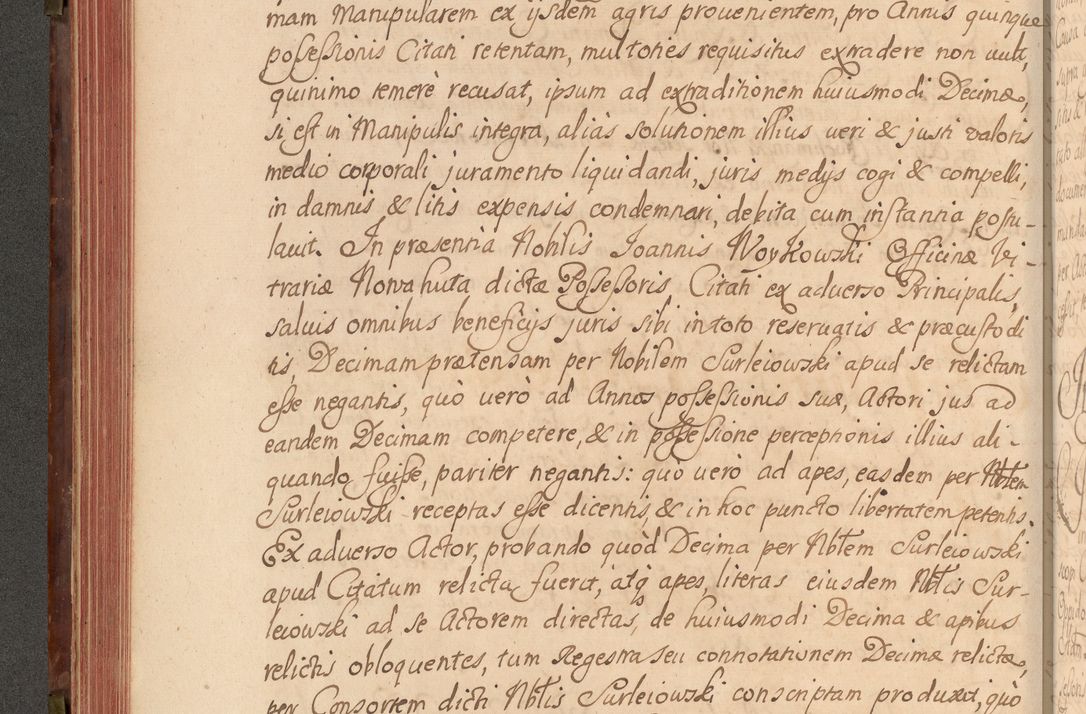 mam Manipularem ex ijsdem agris prouenientem, pro Annis quinque
poſseſsionis Citati retentam, multoties requisitus extradere non uult,
quinimo temerè recusat, ipsum ad extraditionem huiusmodi Decimæ,
si est in Manipulis integra, aliàs solutionem illius ueri & justi valoris
medio corporali juramento liquidandi, juris medijs cogi & compelli,
in damnis & litis expensis condemnari, debita cum instantia postu-
lauit. In præsentia Nobilis Joannis Woykowski Officinæ Vi-
trariæ Nowa huta dictæ Poſseſsoris Citati ex aduerso Principalis,
saluis omnibus beneficijs juris sibi in toto reseruatis & præcustodi
tis, Decimam prætensam per Nobilem Surleiowski apud se relictam
eſse negantis, quò uerò ad Annos poſseſsionis suæ, Actori jus ad
eandem Decimam competere, & in poſseſsione perceptionis illius ali-
quando fuiſse, pariter negantis: quò uerò ad apes, easdem per Nbtem
Surleiowski receptas eſse dicentis, & in hoc puncto libertatem petentis.
Ex aduerso Actor, probando quòd Decima per Nbtem Surleiowski
apud Citatum relicta fuerit, atq apes, literas eiusdem Nbtis Sur-
leiowski ad se Actorem directas, de huiusmodi Decima & apibus
relictis obloquentes, tum Regestra seu connotationem Decimæ relictæ,
per Consortem dicti Nbtis Surleiowski conscriptam produxit, quò